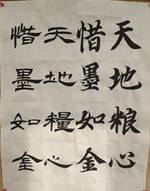 天地粮心
惜墨如金
天地糧心
惜墨如金